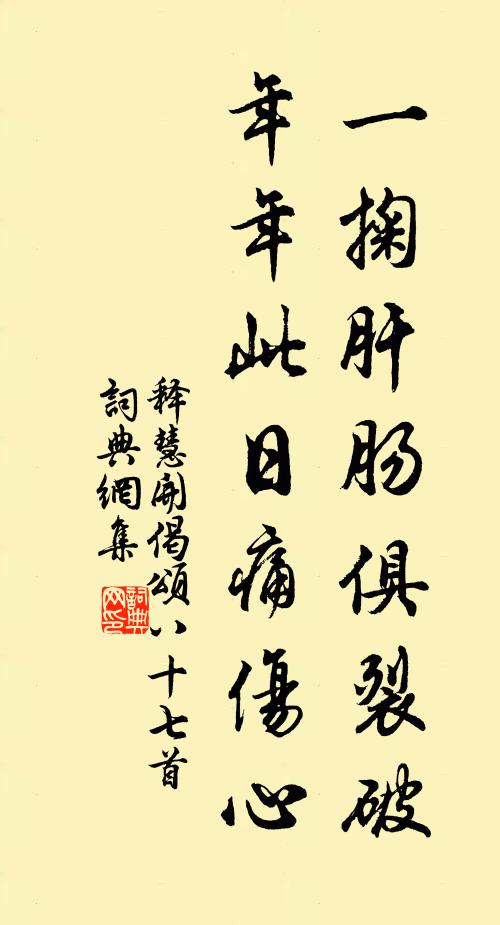 一掬肝肠俱裂破
年年此日痛傷心
释慧開偈頌八十七首
詞典網集
詞典网印